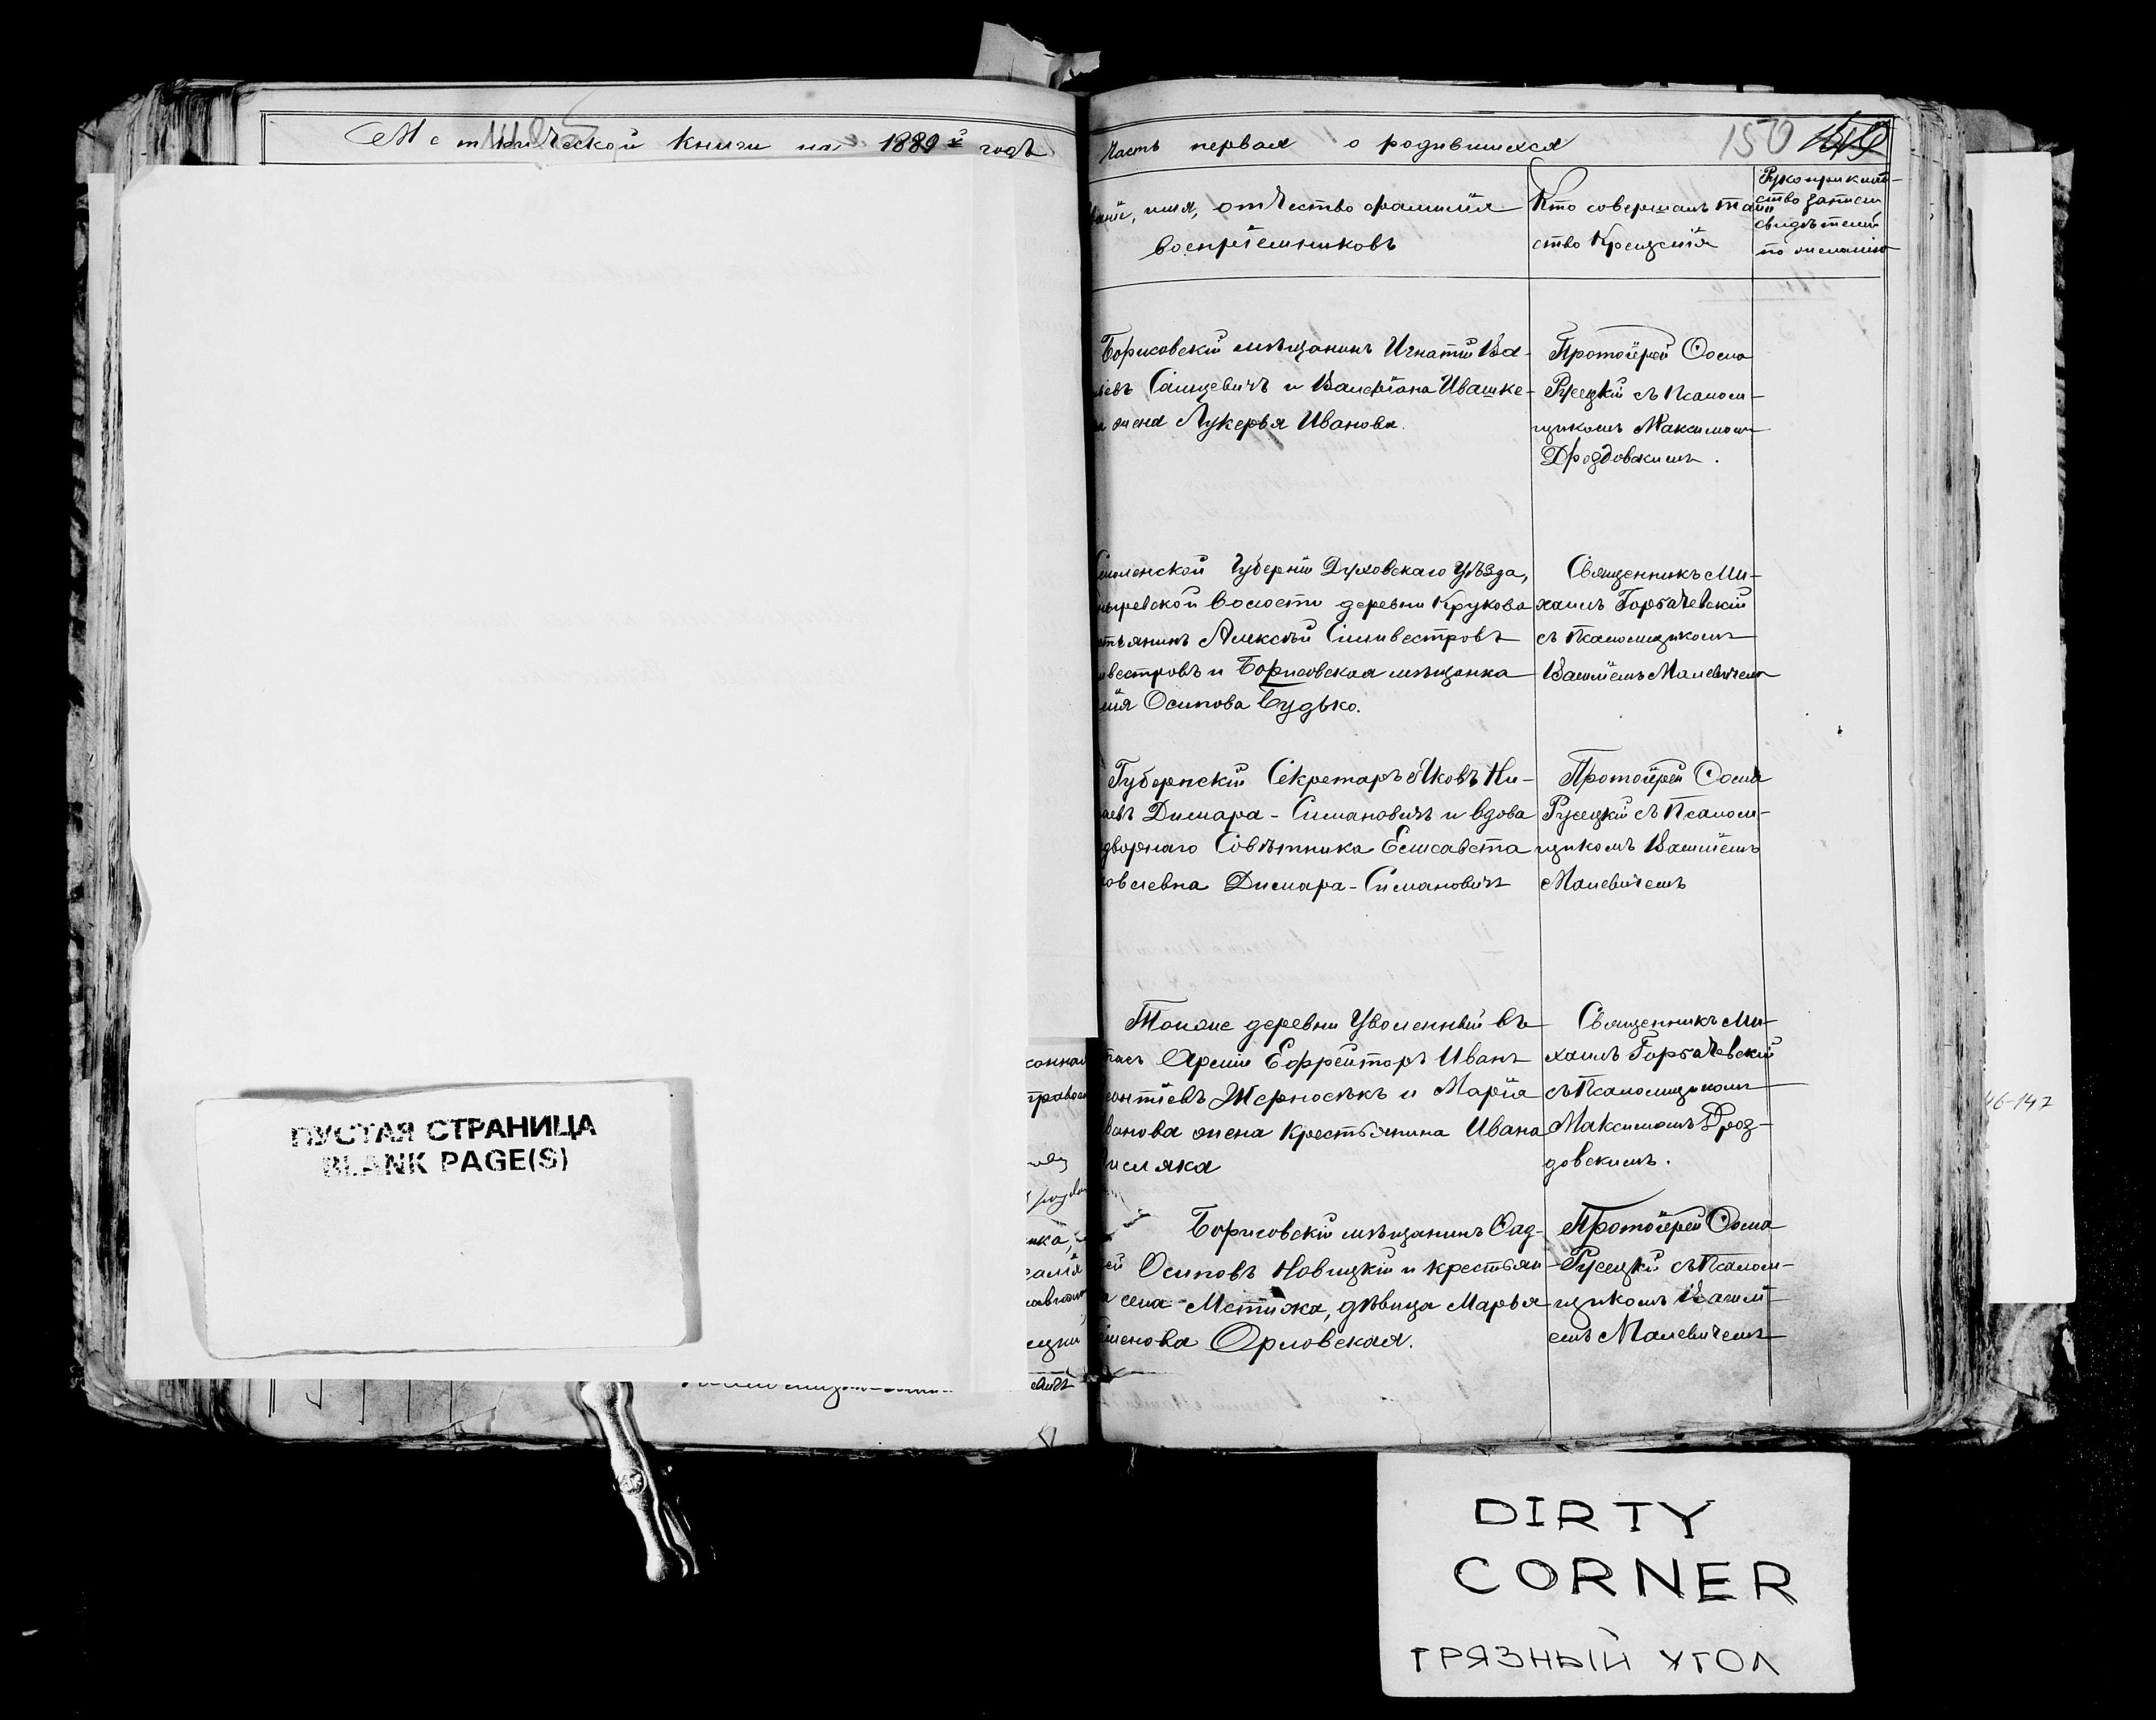 Метрической книги на 1889й годъ
часть первая о родившихся
150
имя, отчество фамилія
воспріемниковъ
Кто совершалъ таин
ство Крещенія
Рукоприклад-
ство записи
свидѣтелей
по желанію
Борисовскій мѣщанинъ Игнатій Ва-
Валеріана Ивашке-
жена Лукерья Иванова.
Протоіерей Ѳома
Русецкій съ Псалом-
щикомъ Максимомъ
Дроздовскимъ.
Губерніи Духовскаго Уѣзда,
волости деревни Крукова
Алексѣй Сильвестровъ
и Борисовская мѣщанка
Осипова Будько.
Священникъ Ми-
хаилъ Горбачевскій
съ Псаломщикомъ
Василіемъ Малевичемъ
Губернскій Секретарь Яковъ Ни-
Димара-Симановичъ и вдова
дворнаго Совѣтника Елисавета
Димара-Симановичъ
Протоіерей Ѳома
Русецкій съ Псалом-
щикомъ Василіемъ
Малевичемъ
Тойже деревни Уволенный въ
Арміи Ефрейторъ Иванъ
Жерносѣкъ и Марія
жена Крестьянина Ивана
Священникъ Ми-
хаилъ Горбачевскій
съ Псаломщикомъ
Максимомъ Дроз-
довскимъ.
Борисовскій мѣщанинъ Ѳад-
Осиповъ Новицкій и крестьян
села Мстижа, дѣвица Марья
Орловская.
Протоіерей Ѳома
Русецкій съ Псалом-
щикомъ Васил-
емъ Малевичемъ
46-147
ПУСТАЯ СТРАНИЦА
BLANK PAGE(S)
DIRTY
CORNER
ГРЯЗНЫЙ УГОЛ